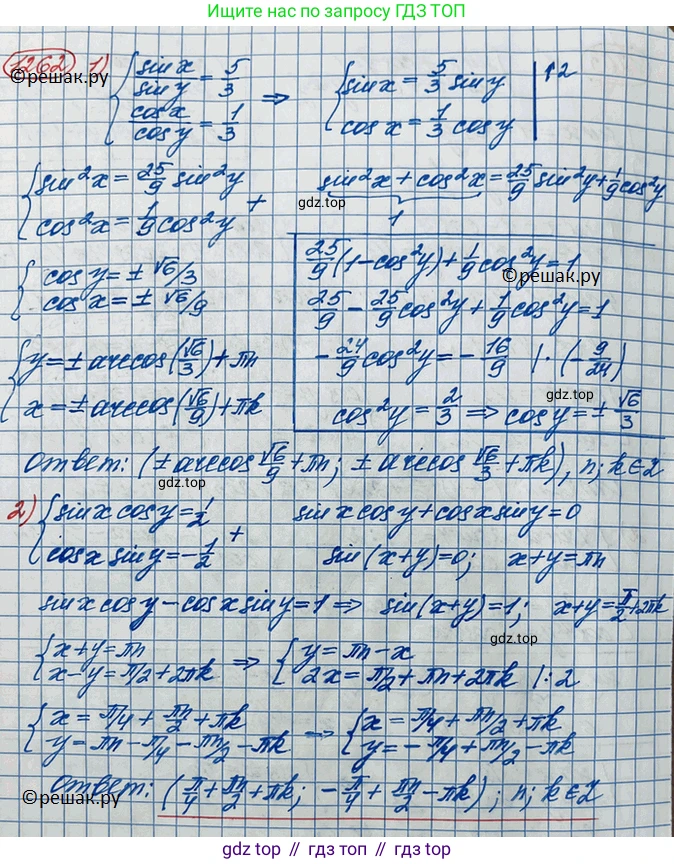 Ищите нас поиском по запросу ГДЗ ТОП
1262 1) { sin x / sin y = 5/3 ; cos x / cos y = 1/3 ⇒ { sin x = 5/3 sin y ; cos x = 1/3 cos y | ↑2
©решак.ру
{ sin²x = 25/9 sin²y ; cos²x = 1/9 cos²y + sin²x + cos²x = 25/9 sin²y + 1/9 cos²y
gdz.top
1
{ cos y = ± √6/3 ; cos x = ± √6/9
25/9 (1 - cos²y) + 1/9 cos²y = 1
©решак.ру
25/9 - 25/9 cos²y + 1/9 cos²y = 1
- 24/9 cos²y = - 16/9 | · (- 9/24)
gdz.top
cos²y = 2/3 ⇒ cos y = ± √6/3
{ y = ± arccos(√6/3) + πn
x = ± arccos(√6/9) + πk
Ответ: (± arccos √6/9 + πn; ± arccos √6/3 + πk), n; k ∈ Z
2) { sin x cos y = 1/2 ; cos x sin y = - 1/2 +
sin x cos y + cos x sin y = 0
sin (x+y) = 0; x+y = πn
sin x cos y - cos x sin y = 1 ⇒ sin (x+y) = 1; x+y = π/2 + 2πk
{ x+y = πn ; x-y = π/2 + 2πk ⇒ { y = πn - x ; 2x = π/2 + πn + 2πk | :2
gdz.top
{ x = π/4 + πn/2 + πk ; y = πn - π/4 - πn/2 - πk ⇒ { x = π/4 + πn/2 + πk ; y = - π/4 + πn/2 - πk
Ответ: (π/4 + πn/2 + πk; - π/4 + πn/2 - πk); n; k ∈ Z
©решак.ру
gdz.top // гдз.топ // gdz.top // гдз.топ